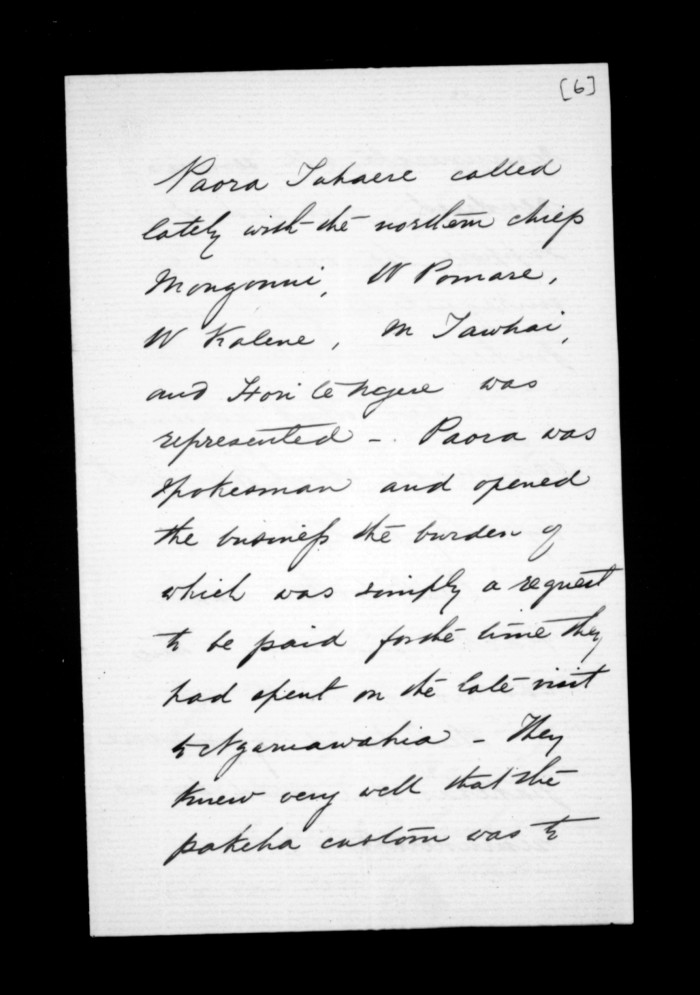 [6]
Paora Tuhaere called
lately with the northern chiefs
Mongonui, W Pomare,
W Katene, M Tawhai,
and Hori te was
represented - Paora was
spokesman and opened
the business the burden of
which was simply a request
to be paid for the time they
had spent on the late visit
to Ngaruawahia - They
knew very well that the
pakeha custom was to